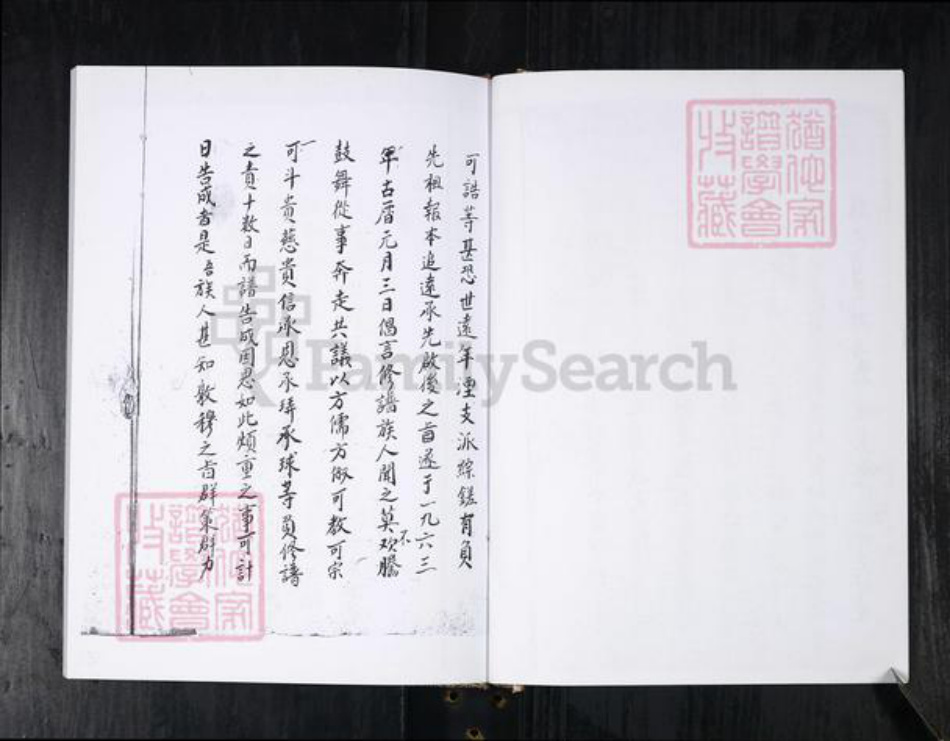 可誥等甚恐世遠年湮支派綜鎈有負
先祖報本追遠承先啟後之旨遂于一九六三
年古曆元月三日倡言修譜族人聞之莫不欢騰
鼓舞從事奔走共議以方儒方倣可教可宗
可斗贵慈貴信承恩承瑋承球等員修譜
之責十数日而譜告成因思如此煩重之事可計
日告成者是吾族人甚知敦穆之旨群策群力
FamilySearch
譜學會
收藏
譜學會
收藏